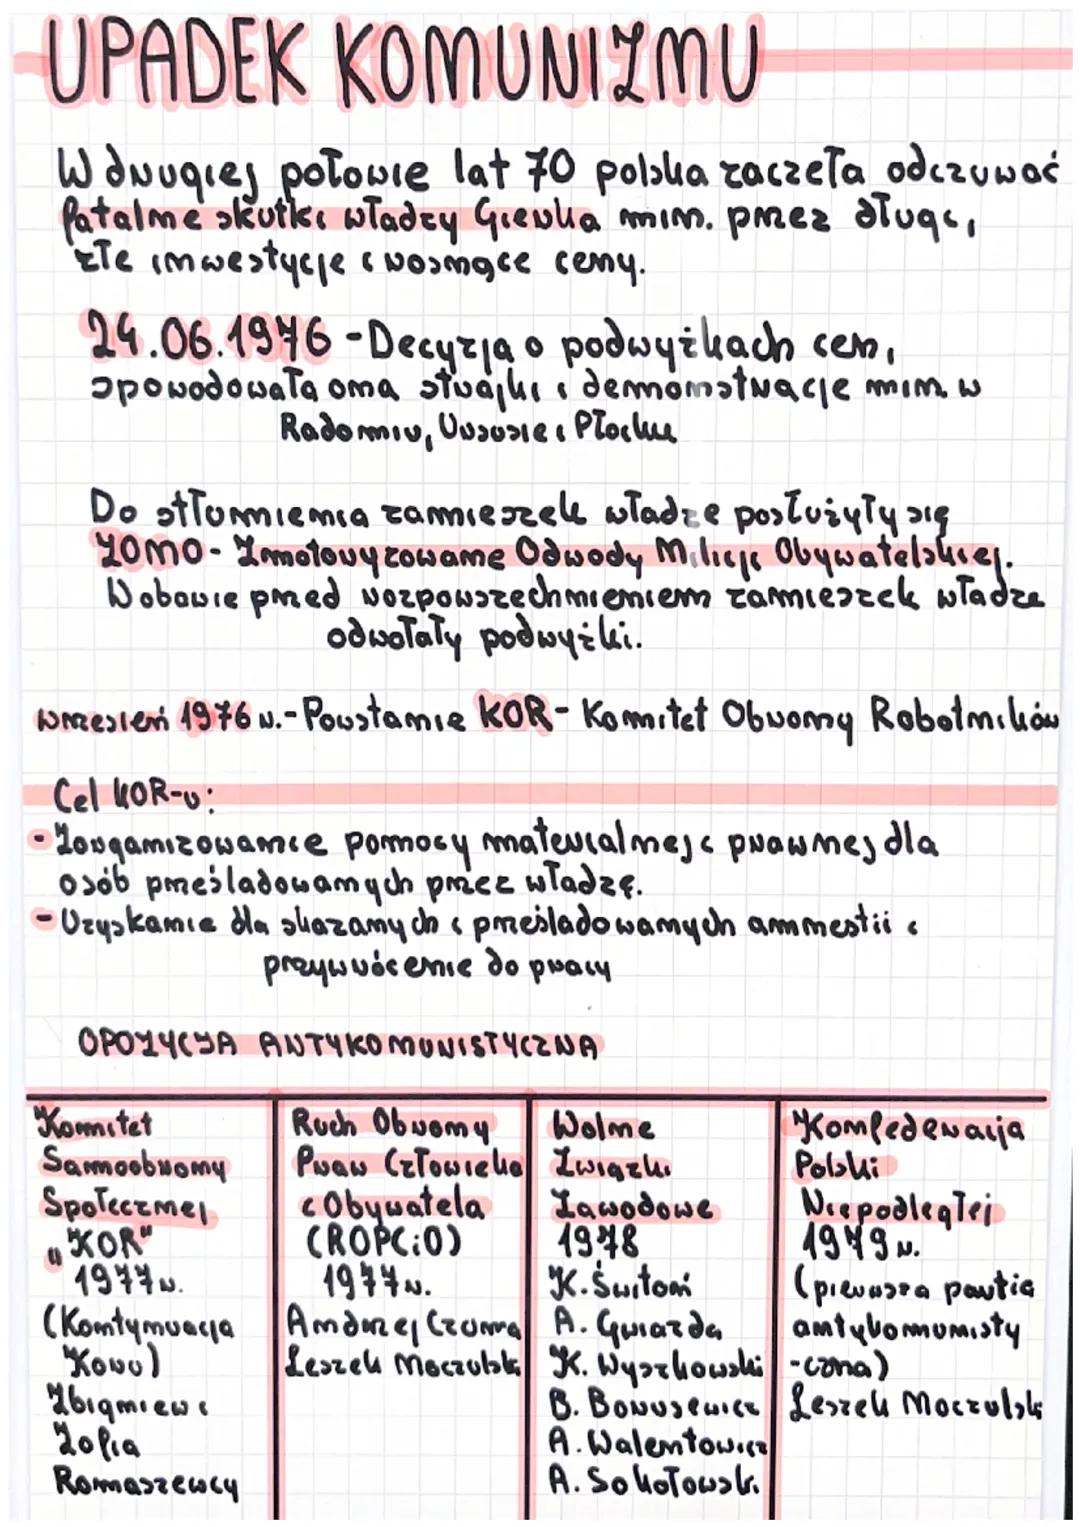 UPADEK KOMUNIZMU
W drugiej połowie lat 70 polska zaczęła odczuwać
fatalne skutki władzy Gierka m.in. przez długi,
złe inwestycje i rosnące ceny.
24.06.1976 - Decyzja o podwyżkach cen,
spowodowała ona strajki i demonstracje m.in. w
Radomiu, Ursusie i Płocku
Do stłumienia zamieszek władze posłużyły się
ZOMO - Zmotoryzowane Odwody Milicji Obywatelskiej.
W obawie przed rozpowszechnieniem zamieszek władze
odwołały podwyżki.
wrzesień 1976 r. - Powstanie KOR - Komitet Obrony Robotników
Cel KOR-u:
- Zorganizowanie pomocy materialnej i prawnej dla
osób prześladowanych przez władzę.
- Uzyskanie dla skazanych i prześladowanych amnestii i
przywrócenie do pracy
OPOZYCJA ANTYKOMUNISTYCZNA
Komitet
Samoobrony
Społecznej
"KOR"
1977 r.
(Kontynuacja
Koru)
Zbigniew i
Zofia
Romaszewcy
Ruch Obrony
Praw Człowieka
i Obywatela
(ROPCiO)
1977 r.
Andrzej Czuma
Leszek Moczulski
Wolne
Związki
Zawodowe
1978
K. Świtoń
A. Gwiazda
K. Wyszkowski
B. Borusewicz
A. Walentowicz
A. Sokołowski
Konfederacja
Polski
Niepodległej
1979 r.
(pierwsza partia
antykomunisty
-czna)
Leszek Moczulski